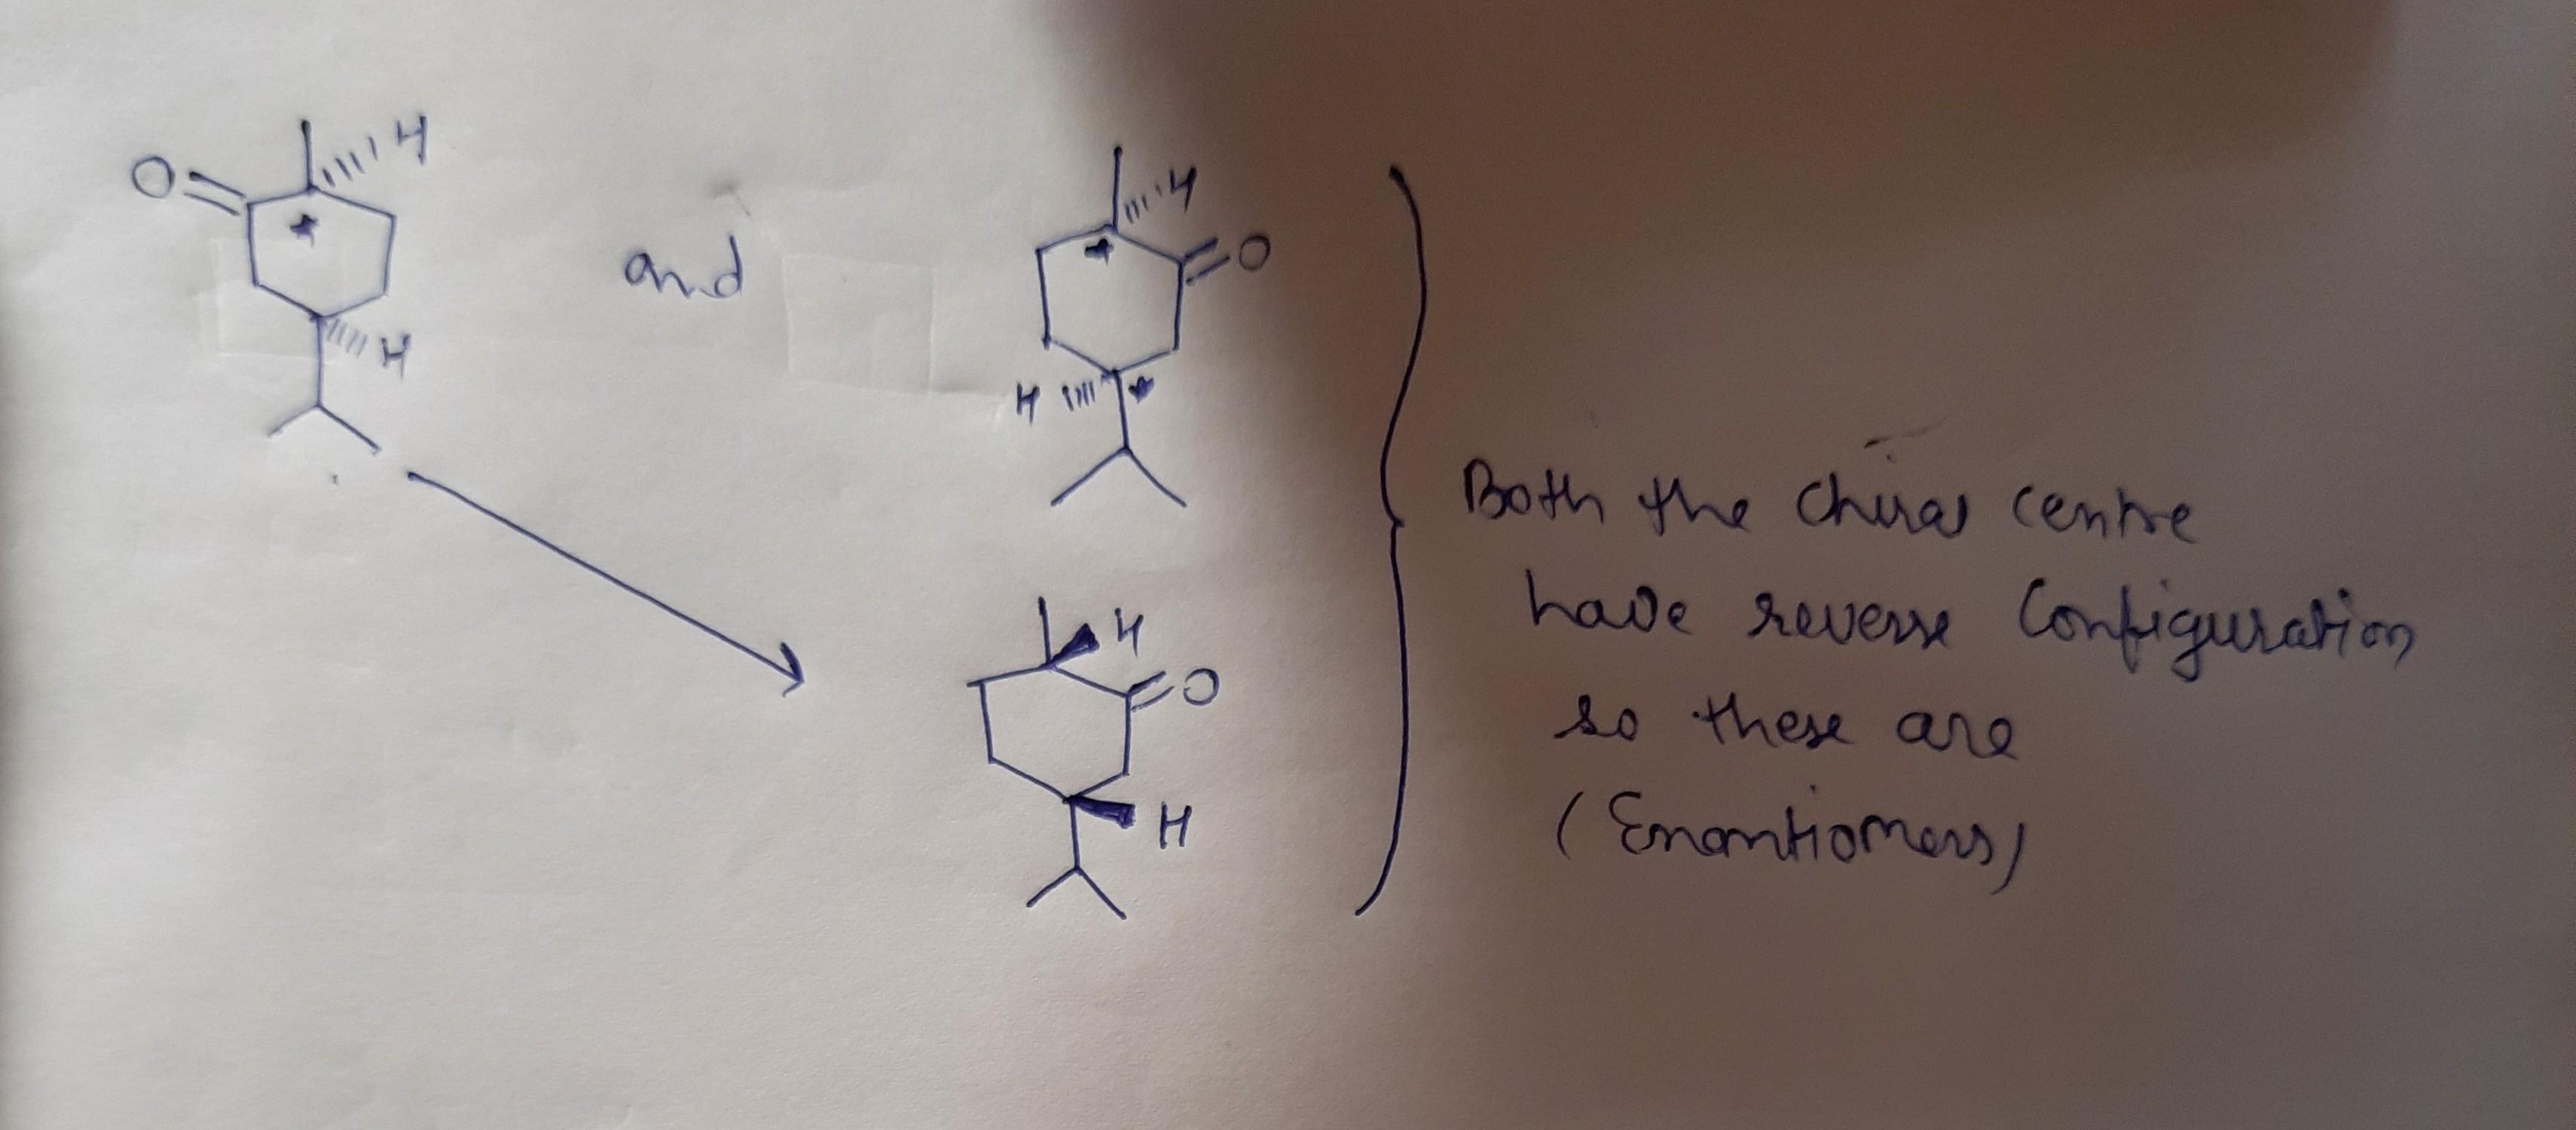 O H
H
and
H
O
H
H
O
H
Both the chiral centre
have reverse Configuration
so these are
(Enantiomers)